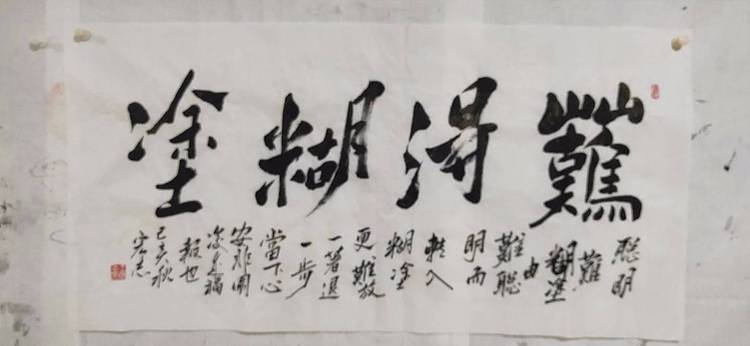 難得糊塗
聪明
難
糊塗
由
難聪
明而
轉入
糊塗
更難放
一著退
一步
當下心
安非圖
後来福
報也
己亥秋